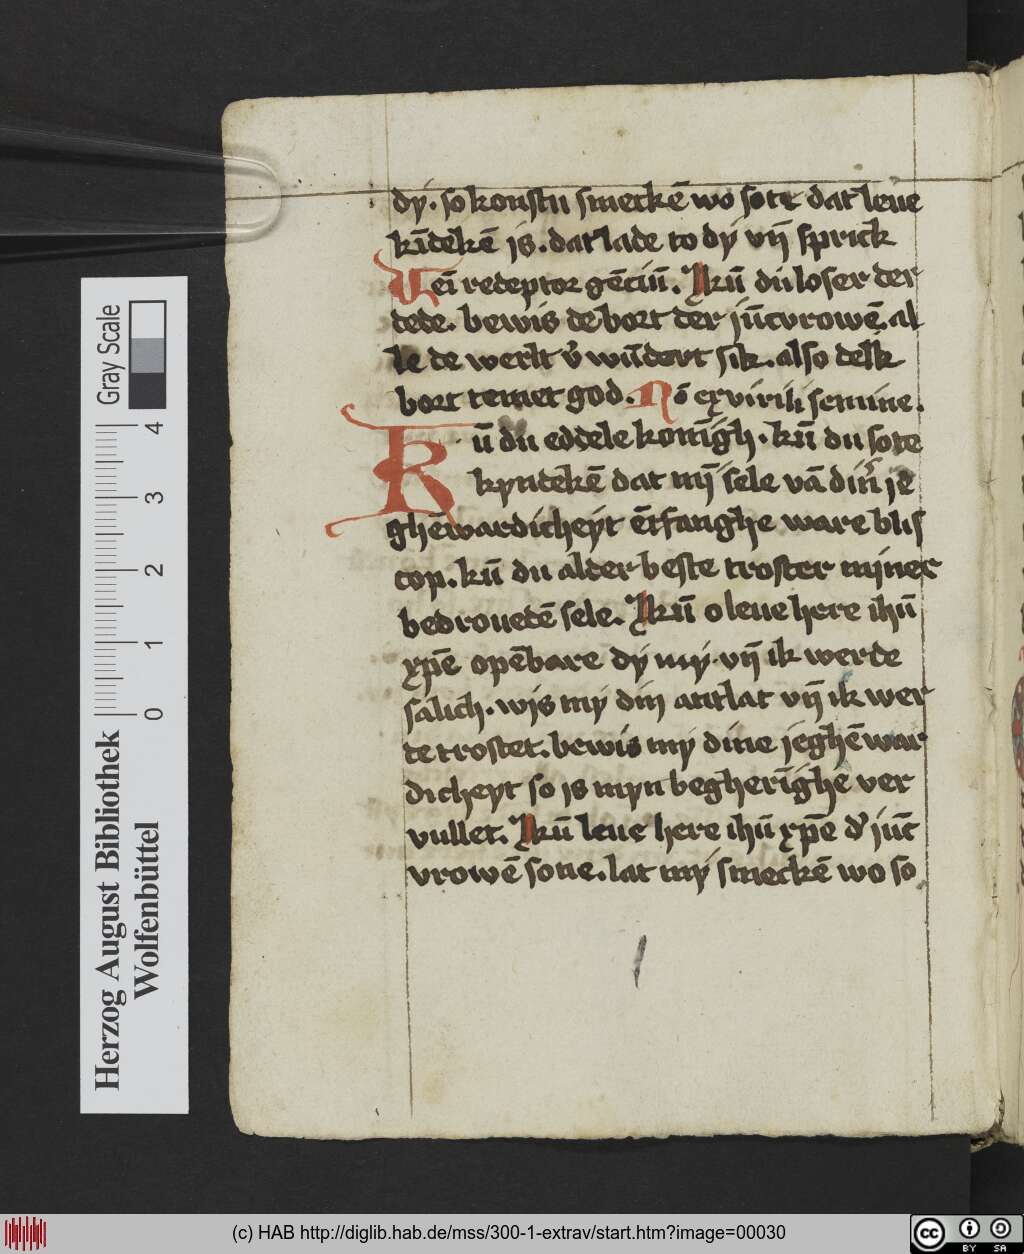 dy. so konstu smeckē wo sote dat leue
kīdekē is. dat lade to dy vn̄ sprick
Vēi redēptor gēciū. Kū du loser der
dede. bewis de bort der jūcvrowē. al
le de werlt v̓ wūdert sik. also delk
bort temet god. Nō ex virili semine.
Kū du eddele konīgh. kū du sote
kyndekē dat mī sele vā din̓ ie
ghēwardicheyt ētfanghe ware blis
cop. kū du alder beste troster mijner
bedrouedē sele. Kū o leue here ihū
xp̄e opēbare dy my. vn̄ ik werde
salich. wis my din antlat vn̄ ik wer
de trostet. bewis my dine jeghēwar
dicheyt so is myn begherīghe ver
vullet. Kū leue here ihū xp̄e d̓ jūc
vrowē sone. lat my smeckē wo so
Herzog August Bibliothek
Wolfenbüttel
Gray Scale
0 1 2 3 4
(c) HAB http://diglib.hab.de/mss/300-1-extrav/start.htm?image=00030
cc BY SA